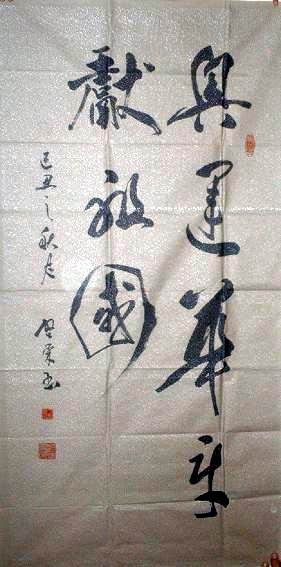 奧運華章
獻祖國
己丑之秋月